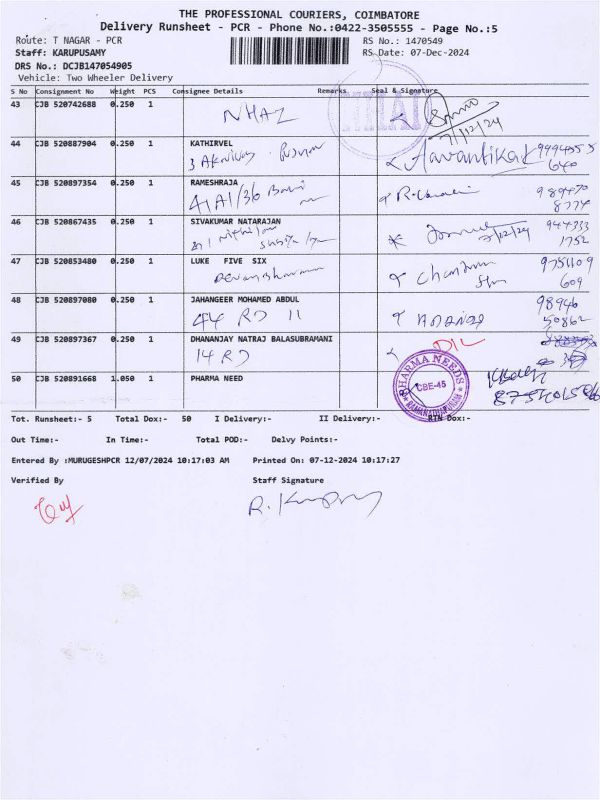 THE PROFESSIONAL COURIERS, COIMBATORE
Delivery Runsheet - PCR - Phone No.:0422-3505555 - Page No.:5
Route: T NAGAR - PCR RS No.: 1470549
Staff: KARUPUSAMY RS Date: 07-Dec-2024
DRS No.: DCJB147054905
Vehicle: Two Wheeler Delivery
S No Consignment No Weight PCS Consignee Details Remarks Seal & Signature
43 CJB 520742688 0.250 1 NHAI
7/12/24
44 CJB 520887904 0.250 1 KATHIRVEL
Aavantika
640
45 CJB 520897354 0.250 1 RAMESHRAJA
41A1/36 989470
8774
46 CJB 520867435 0.250 1 SIVAKUMAR NATARAJAN
7/12/24 944333
1752
47 CJB 520853480 0.250 1 LUKE FIVE SIX
9751109
609
48 CJB 520897080 0.250 1 JAHANGEER MOHAMED ABDUL
44 RD 11 98946
50862
49 CJB 520897367 0.250 1 DHANANJAY NATRAJ BALASUBRAMANI
14 RD DIL
50 CJB 520891668 1.050 1 PHARMA NEED
PHARMA NEEDS
CBE-45
RAMANATHAPURAM
Tot. Runsheet:- 5 Total Dox:- 50 I Delivery:- II Delivery:- RTN Dox:-
Out Time:- In Time:- Total POD:- Delvy Points:-
Entered By :MURUGESHPCR 12/07/2024 10:17:03 AM Printed On: 07-12-2024 10:17:27
Verified By Staff Signature